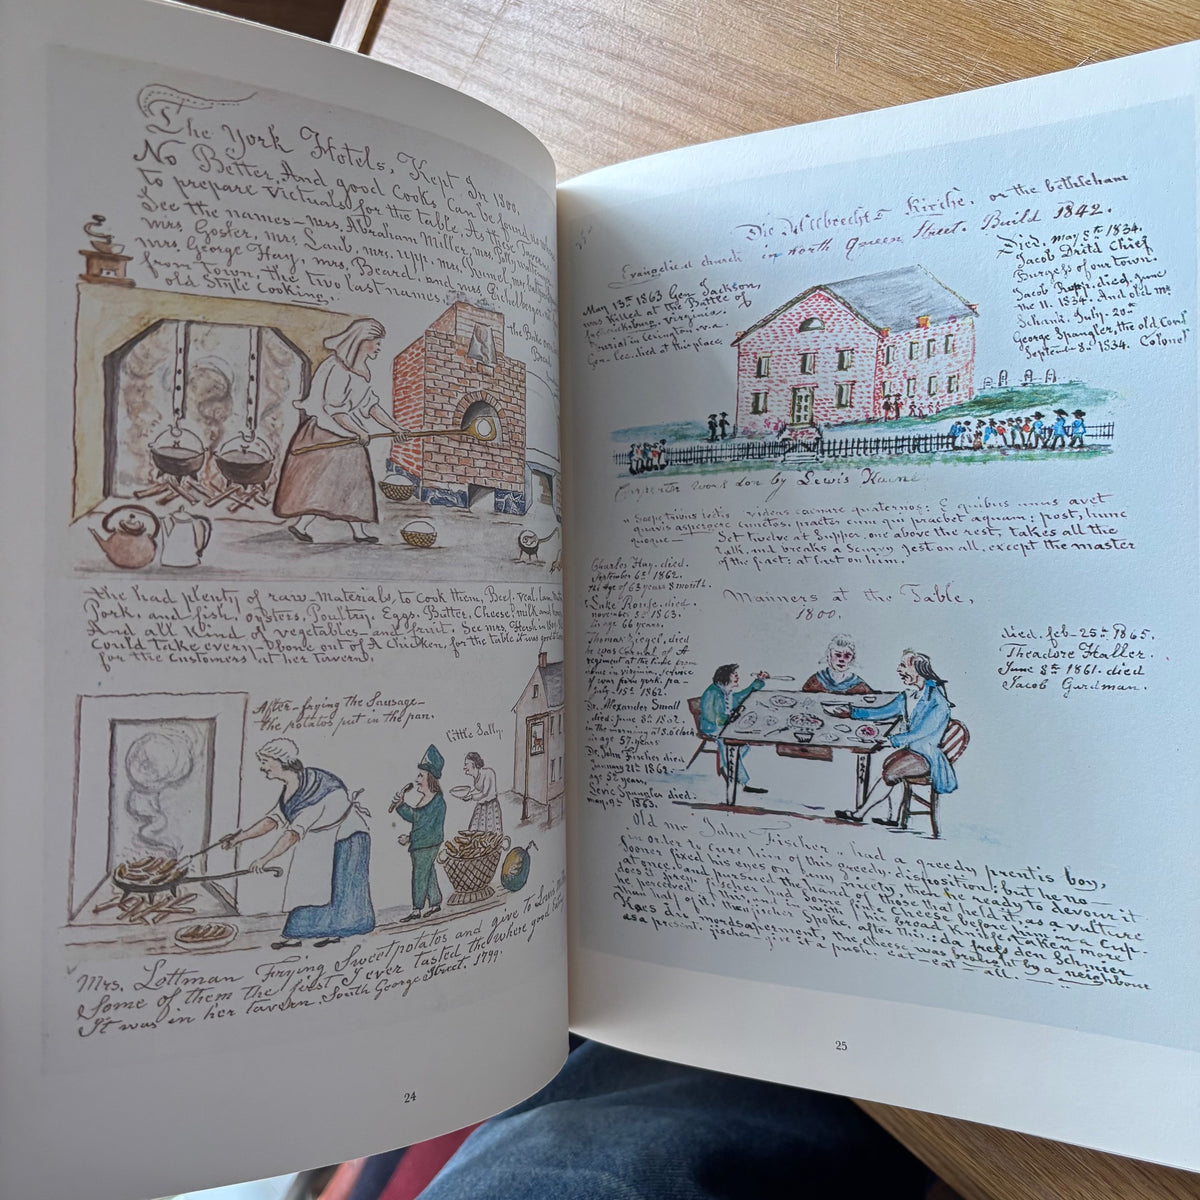 The York Hotels, Kept In 1800.
No Better, And good Cooks Can be found so well
to prepare victuals for the table. As these Tavern
See the names — mrs. Abraham Miller, mrs. Polly
mrs. Gosler, mrs. Laub, mrs. Upp. mrs.
mrs. George Hay, mrs. Beard, and mrs. Eichelberger,
from Town, the two last names,
old Style Cooking.
the Bake
Bread
the had plenty of raw-materials, to Cook them, Beef. veal, Lam
Pork, and fish, oysters, Poultry, Eggs, Butter, Cheese, milk and
And all kind of vegetables — and fruit, See mrs. Hersh in
Could take every-Phone out of A chicken, for the table it was
for the Customers at her tavern.
After-frying the Sausage—
the potatos put in the pan.
Little Sally
Mrs. Lottman Frying Sweetpotatos and give to Lewis
Some of them the first I ever tasted the where good
It was in her tavern. South George Street. 1799.
24
Die Kirche. or the bethleham
Evangelical church in north Queen Street. Build 1842.
May 13th 1863 Gen Jackson,
was Killed at the Battle of
Virginia.
Burial in Lexington v.a.
Gen Lee. died at this place.
Died. may 5th 1834.
Jacob Chief
Burgess of our town.
Jacob died, june
the 11. 1834. And old mr
Schank. July. 20th
George Spangler, the old
September 8th 1834. Colonel
Carpenter work don by Lewis
Saepe tribus lectis videas caenare quaternos: E quibus unus avet
quavis aspergere cunctos, praeter eum qui praebet aquam; post, hunc
quoque —
Set twelve at Supper, one above the rest, takes all the
talk, and breaks a Scurvy Jest on all, except the master
of the feast: at last on him.
Charles Hay. died.
September 6th 1862.
the Age of 63 years 8 month.
Luke Rouse. died.
november 5th 1863.
is age 66 years.
Thomas Ziegel, died
he was Cornal of A
regiment at the time
in virginia, service
of war from york. pa —
July. 15th 1862.
Dr. Alexander Small
died. june 8th 1862.
in the morning at 3.o'clock
is age 57. years
Dr. John Fischer died
January 21th 1862.
age 5 years.
Levic Spangler died.
may. 9th 1863.
Manners at the Table,
1800.
died. feb - 25th 1865.
Theadore Haller.
June 8th 1861. died
Jacob Gardman.
Old mr. John Fischer, had a greedy prentis boy,
in order to cure him of this greedy. disposition; but he no —
Sooner fixed his eyes on any nicety, then he ready to devour it
at once, and pursued the hand of those that held it, as a vulture
does it prey. fischer had Some fine Cheese before him in a Cup.
he perceived this, and in with his broad knife taken more
than half of it. then fischer Spoke, after then: da fress den Schmier
Kaes du mordsaperment, the cheese was brought by a neighbour
as a present. fischer - give it a push. eat - eat - all —
25